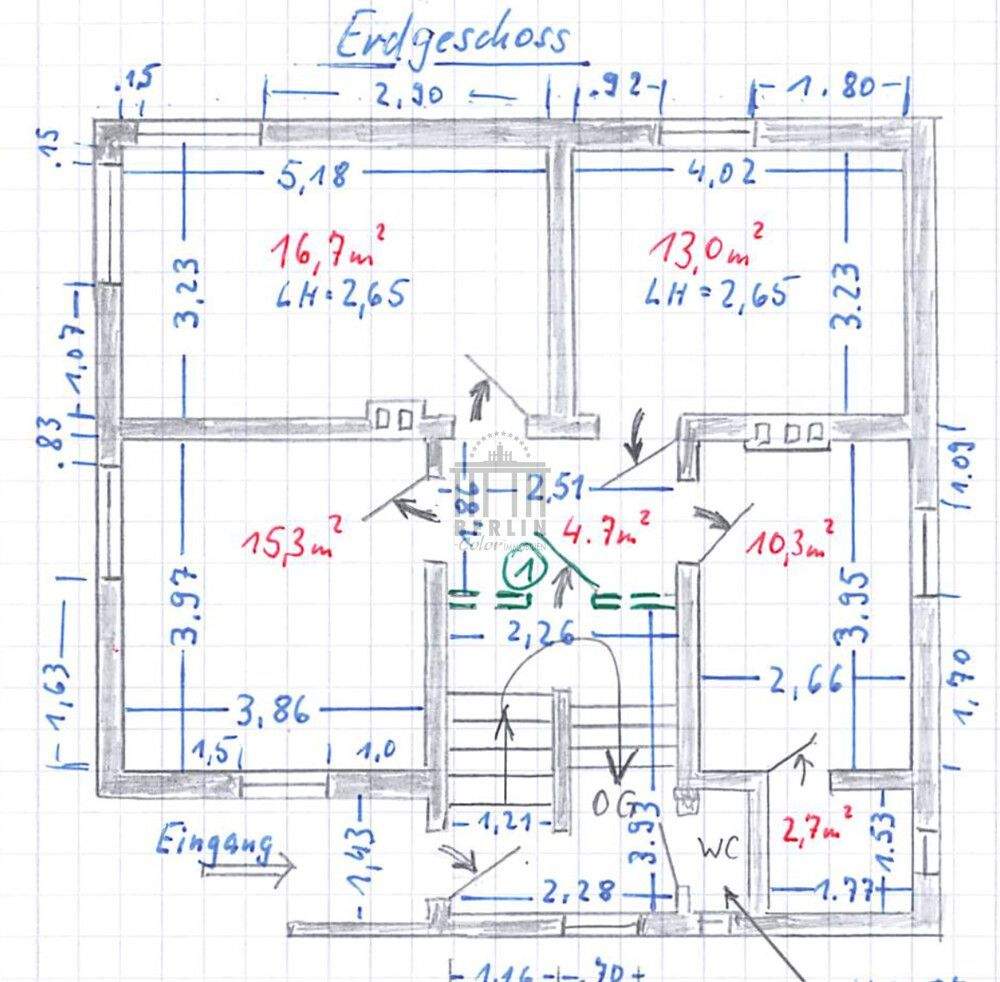 Erdgeschoss
.15
2,90
.92
1.80
.15
5,18
4,02
16,7m²
LH=2,65
13,0m²
LH=2,65
3,23
3.23
1.07
.83
1.09
2,51
1.86
BERLIN
Color IMMOBILIEN
15,3m²
4.7m²
10,3m²
1
3.97
3.95
2,26
1,63
2,66
1,70
3,86
1,5
1,0
OG
1,21
3.93
2,7m²
1.53
Eingang
1,43
WC
2,28
1.77
1.16
.70